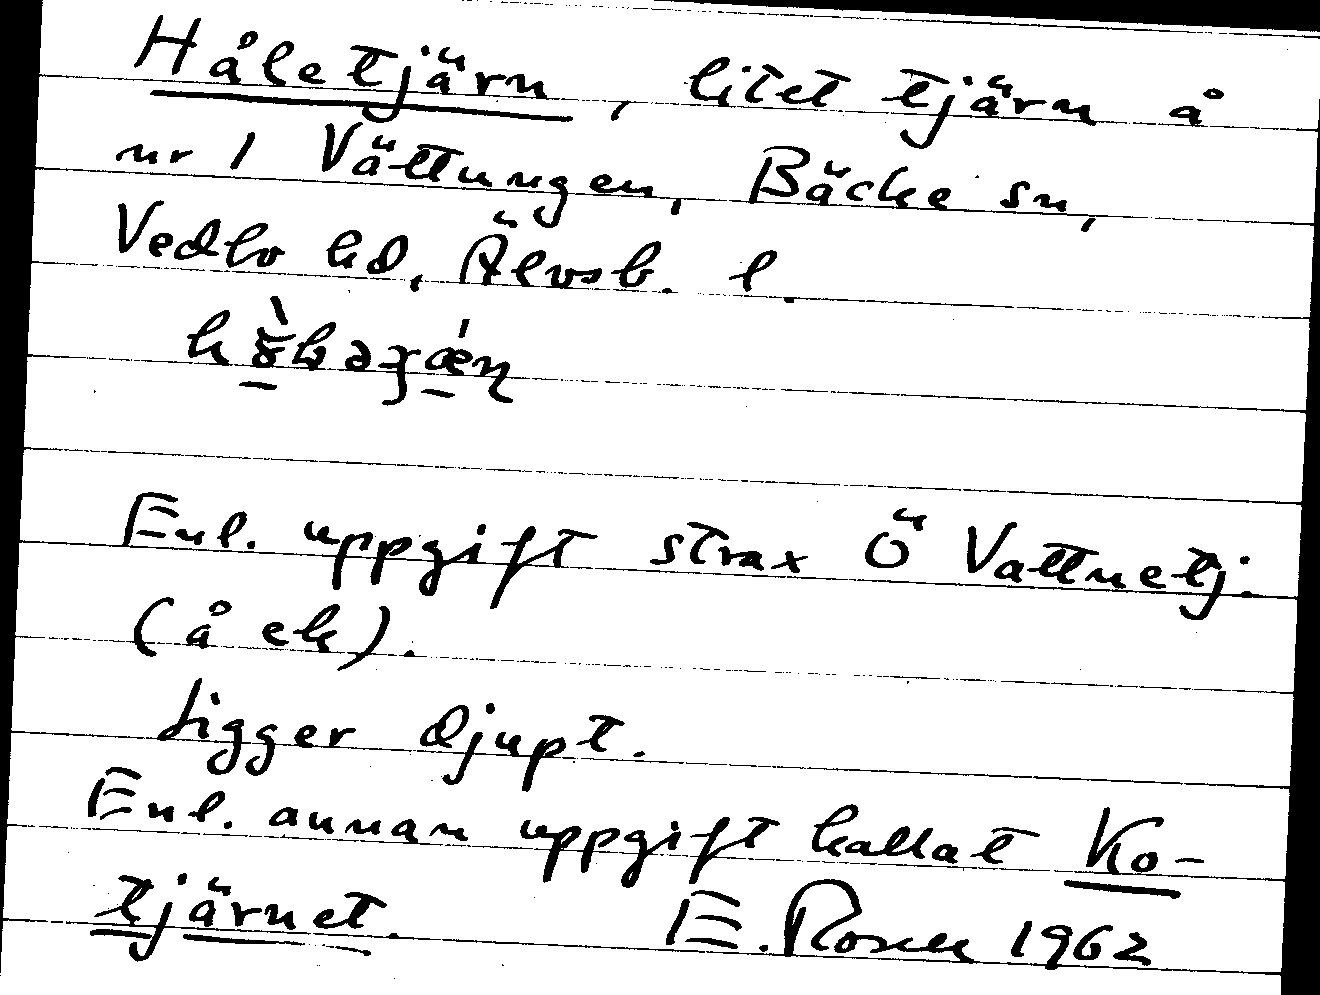 Håletjärn, litet tjärn å
nr 1 Vättungen, Bäcke sn,
Vedbo hd, Älvsb. l.
Enl. uppgift strax Ö Vattnetj.
(å ek).
Ligger djupt.
Enl. annan uppgift kallat Ko-
tjärnet. E. Rosén 1962